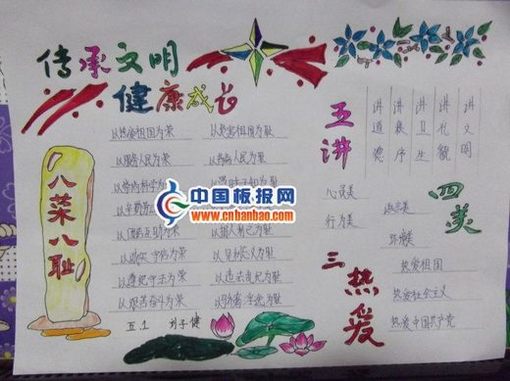 传承文明
健康成长
八荣八耻
以热爱祖国为荣 以危害祖国为耻
以服务人民为荣 以背离人民为耻
以崇尚科学为荣 以愚昧无知为耻
以辛勤劳
以团结互助为荣 以损人利己为耻
以诚实守信为荣 以见利忘义为耻
以遵纪守法为荣 以违法乱纪为耻
以艰苦奋斗为荣 以骄奢淫逸为耻
五.1 刘子健
五讲
讲文明
讲礼貌
讲卫生
讲秩序
讲道德
四美
心灵美
语言美
行为美
环境美
三热爱
热爱祖国
热爱社会主义
热爱中国共产党
中国板报网
www.cnbanbao.com